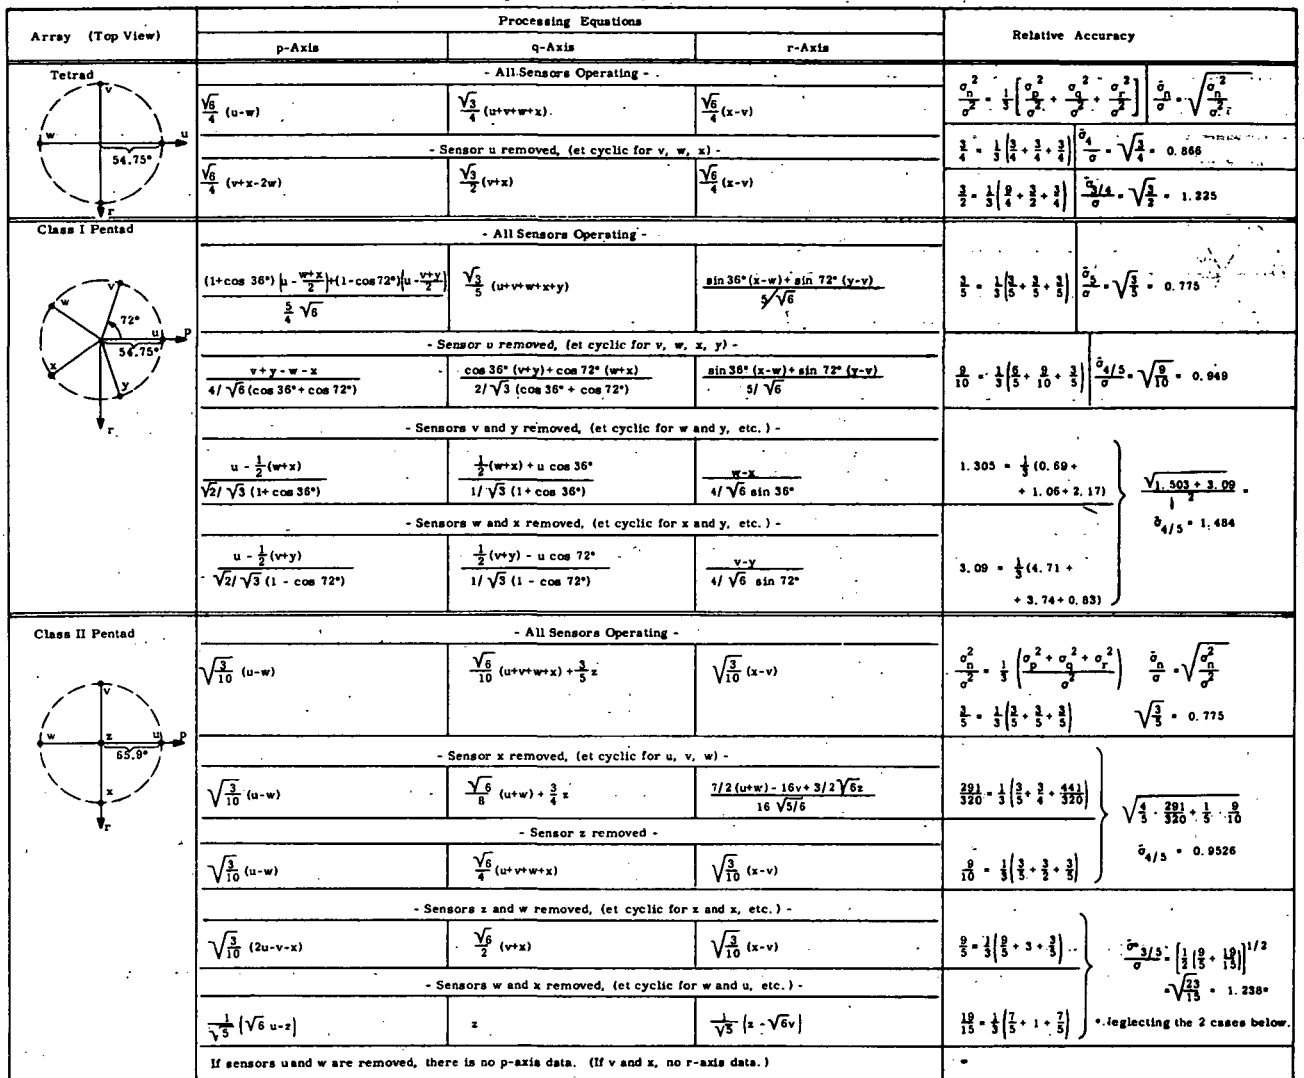 Array (Top View)
Processing Equations
Relative Accuracy
p-Axis
q-Axis
r-Axis
Tetrad
v
w
u
54.75°
r
- All Sensors Operating -
√6/4 (u-w)
√3/4 (u+v+w+x)
√6/4 (x-v)
σn²/σ² = 1/3 [σp²/σ² + σq²/σ² + σr²/σ²]
σ̄n/σ = √(σn²/σ²)
3/4 = 1/3 (3/4 + 3/4 + 3/4)
σ̄4/σ = √(3/4) = 0.866
- Sensor u removed, (et cyclic for v, w, x) -
√6/4 (v+x-2w)
√3/2 (v+x)
√6/4 (x-v)
3/2 = 1/3 (9/4 + 3/2 + 3/4)
σ̄3/4/σ = √(3/2) = 1.225
Class I Pentad
v
w
72°
u
p
54.75°
x
y
r
- All Sensors Operating -
(1+cos 36°) (u - (w+x)/2) + (1-cos72°) (u - (v+y)/2)
5/4 √6
√3/5 (u+v+w+x+y)
sin 36° (x-w) + sin 72° (y-v)
5/√6
3/5 = 1/3 (3/5 + 3/5 + 3/5)
σ̄5/σ = √(3/5) = 0.775
- Sensor u removed, (et cyclic for v, w, x, y) -
v+y-w-x
4/√6 (cos 36° + cos 72°)
cos 36° (v+y) + cos 72° (w+x)
2/√3 (cos 36° + cos 72°)
sin 36° (x-w) + sin 72° (y-v)
5/√6
9/10 = 1/3 (6/5 + 9/10 + 3/5)
σ̄4/5/σ = √(9/10) = 0.949
- Sensors v and y removed, (et cyclic for w and y, etc.) -
u - 1/2 (w+x)
√2/√3 (1+ cos 36°)
1/2 (w+x) + u cos 36°
1/√3 (1+ cos 36°)
w-x
4/√6 sin 36°
1.305 = 1/3 (0.69 +
+ 1.06 + 2.17)
√(1.503 + 3.09) =
2
σ̄4/5 = 1.484
- Sensors w and x removed, (et cyclic for x and y, etc.) -
u - 1/2 (v+y)
√2/√3 (1 - cos 72°)
1/2 (v+y) - u cos 72°
1/√3 (1 - cos 72°)
v-y
4/√6 sin 72°
3.09 = 1/3 (4.71 +
+ 3.74 + 0.83)
Class II Pentad
v
w
z
u
p
65.9°
x
r
- All Sensors Operating -
√(3/10) (u-w)
√6/10 (u+v+w+x) + 3/5 z
√(3/10) (x-v)
σn²/σ² = 1/3 ((σp² + σq² + σr²)/σ²)
σ̄n/σ = √(σn²/σ²)
3/5 = 1/3 (3/5 + 3/5 + 3/5)
√(3/5) = 0.775
- Sensor x removed, (et cyclic for u, v, w) -
√(3/10) (u-w)
√6/8 (u+w) + 3/4 z
7/2 (u+w) - 16v + 3/2 √6z
16 √5/6
291/320 = 1/3 (3/5 + 3/4 + 441/320)
√(4/5 · 291/320 + 1/5 · 9/10)
σ̄4/5 = 0.9526
- Sensor z removed -
√(3/10) (u-w)
√6/4 (u+v+w+x)
√(3/10) (x-v)
9/10 = 1/3 (3/5 + 3/2 + 3/5)
- Sensors z and w removed, (et cyclic for z and x, etc.) -
√(3/10) (2u-v-x)
√6/2 (v+x)
√(3/10) (x-v)
9/5 = 1/3 (9/5 + 3 + 3/5)
σ̄3/5/σ = [1/2 (9/5 + 19/15)]^1/2
= √(23/15) = 1.238*
- Sensors w and x removed, (et cyclic for w and u, etc.) -
1/√5 (√6 u-z)
z
1/√5 (z - √6v)
19/15 = 1/3 (7/5 + 1 + 7/5)
neglecting the 2 cases below.
If sensors u and w are removed, there is no p-axis data. (If v and x, no r-axis data.)